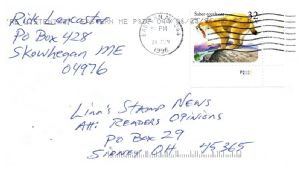 Rick Lancaster
PO Box 428
Skowhegan ME
04976
PM
1996
Saber-tooth cat
32
Linn's Stamp News
Att: Readers Opinions
PO Box 29
Sidney OH 45365